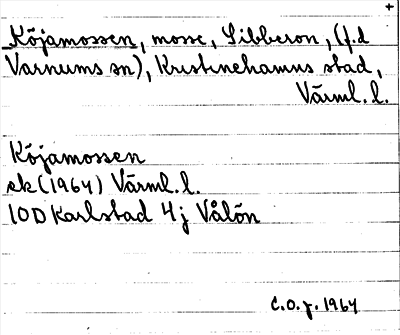 +
Köjamossen, mosse, Sibberon, (f.d
Varnums sn), Kristinehamns stad,
Värml. l.
Köjamossen
ek (1964) Värml. l.
10D Karlstad 4j Vålön
C.O.J. 1964